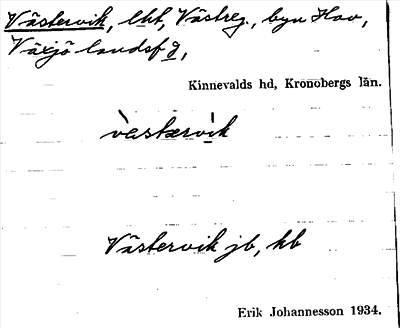 Västervik, lht, Västreg., byn Hov,
Växjö landsf g,
Kinnevalds hd, Kronobergs län.
västərvik
Västervik jb, kb
Erik Johannesson 1934.